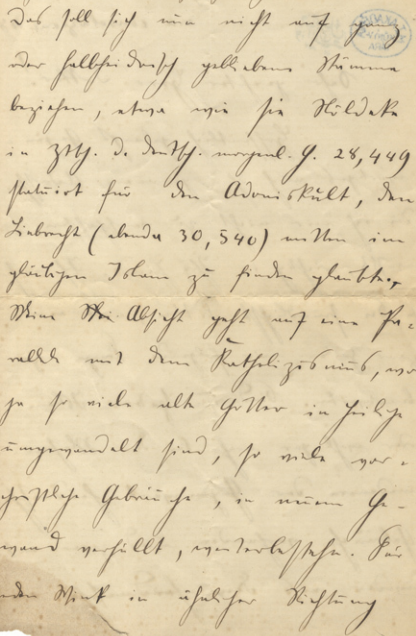 Das soll sich nun nicht auf ganz
oder halbheidnisch gebliebene Stämme
beziehen, etwa wie sie Nöldeke
in Ztth. d. deutsch. morgenl. G. 28,449
statuirt für den Adoniskult, den
Liebrecht (ebenda 30, 540) mitten im
gläubigen Islam zu finden glaubte.
Meine Absicht geht auf eine Pa-
rallele mit dem Katholizismus, wo
ja so viele alte Götter in Heilige
umgewandelt sind, so viele vor-
christliche Gebräuche, in neuem Ge-
wand verhüllt, weiterbestehn. Für
jeden Wink in ähnlicher Richtung